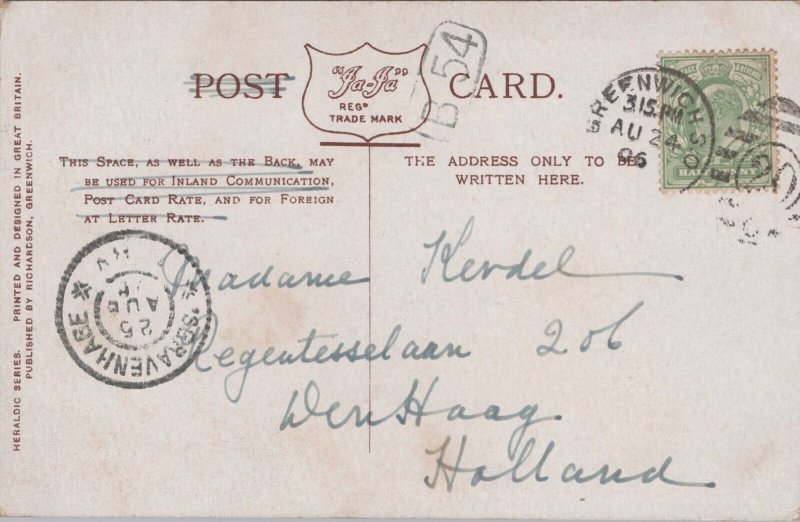 POST CARD.
"Ja-Ja"
REGD
TRADE MARK
B 54
GREENWICH S.O
3.15 PM
AU 24
06
HALFPENNY
THIS SPACE, AS WELL AS THE BACK, MAY
BE USED FOR INLAND COMMUNICATION,
POST CARD RATE, AND FOR FOREIGN
AT LETTER RATE.
THE ADDRESS ONLY TO BE
WRITTEN HERE.
HERALDIC SERIES. PRINTED AND DESIGNED IN GREAT BRITAIN.
PUBLISHED BY RICHARDSON, GREENWICH.
'SGRAVENHAGE
25
AUG
Madame Kerdel
Regentesselaan 206
Den Haag.
Holland